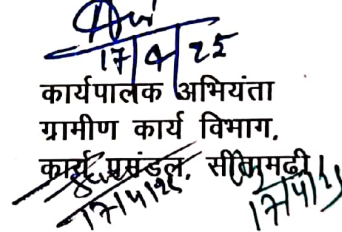 17/4/25
कार्यपालक अभियंता
ग्रामीण कार्य विभाग,
कार्य प्रमंडल, सीतामढ़ी।
17/4/25 17/4/25